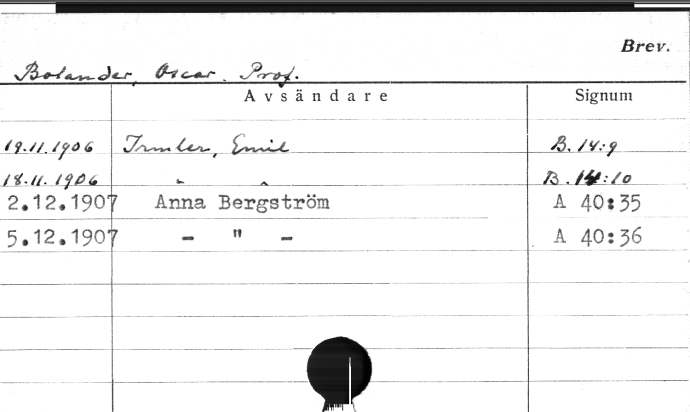 Brev.
Bolander, Oscar. Prof.
Avsändare Signum
19.11.1906 Irmler, Emil B. 14:9
18.11.1906 " " B. 14:10
2.12.1907 Anna Bergström A 40:35
5.12.1907 - " - A 40:36